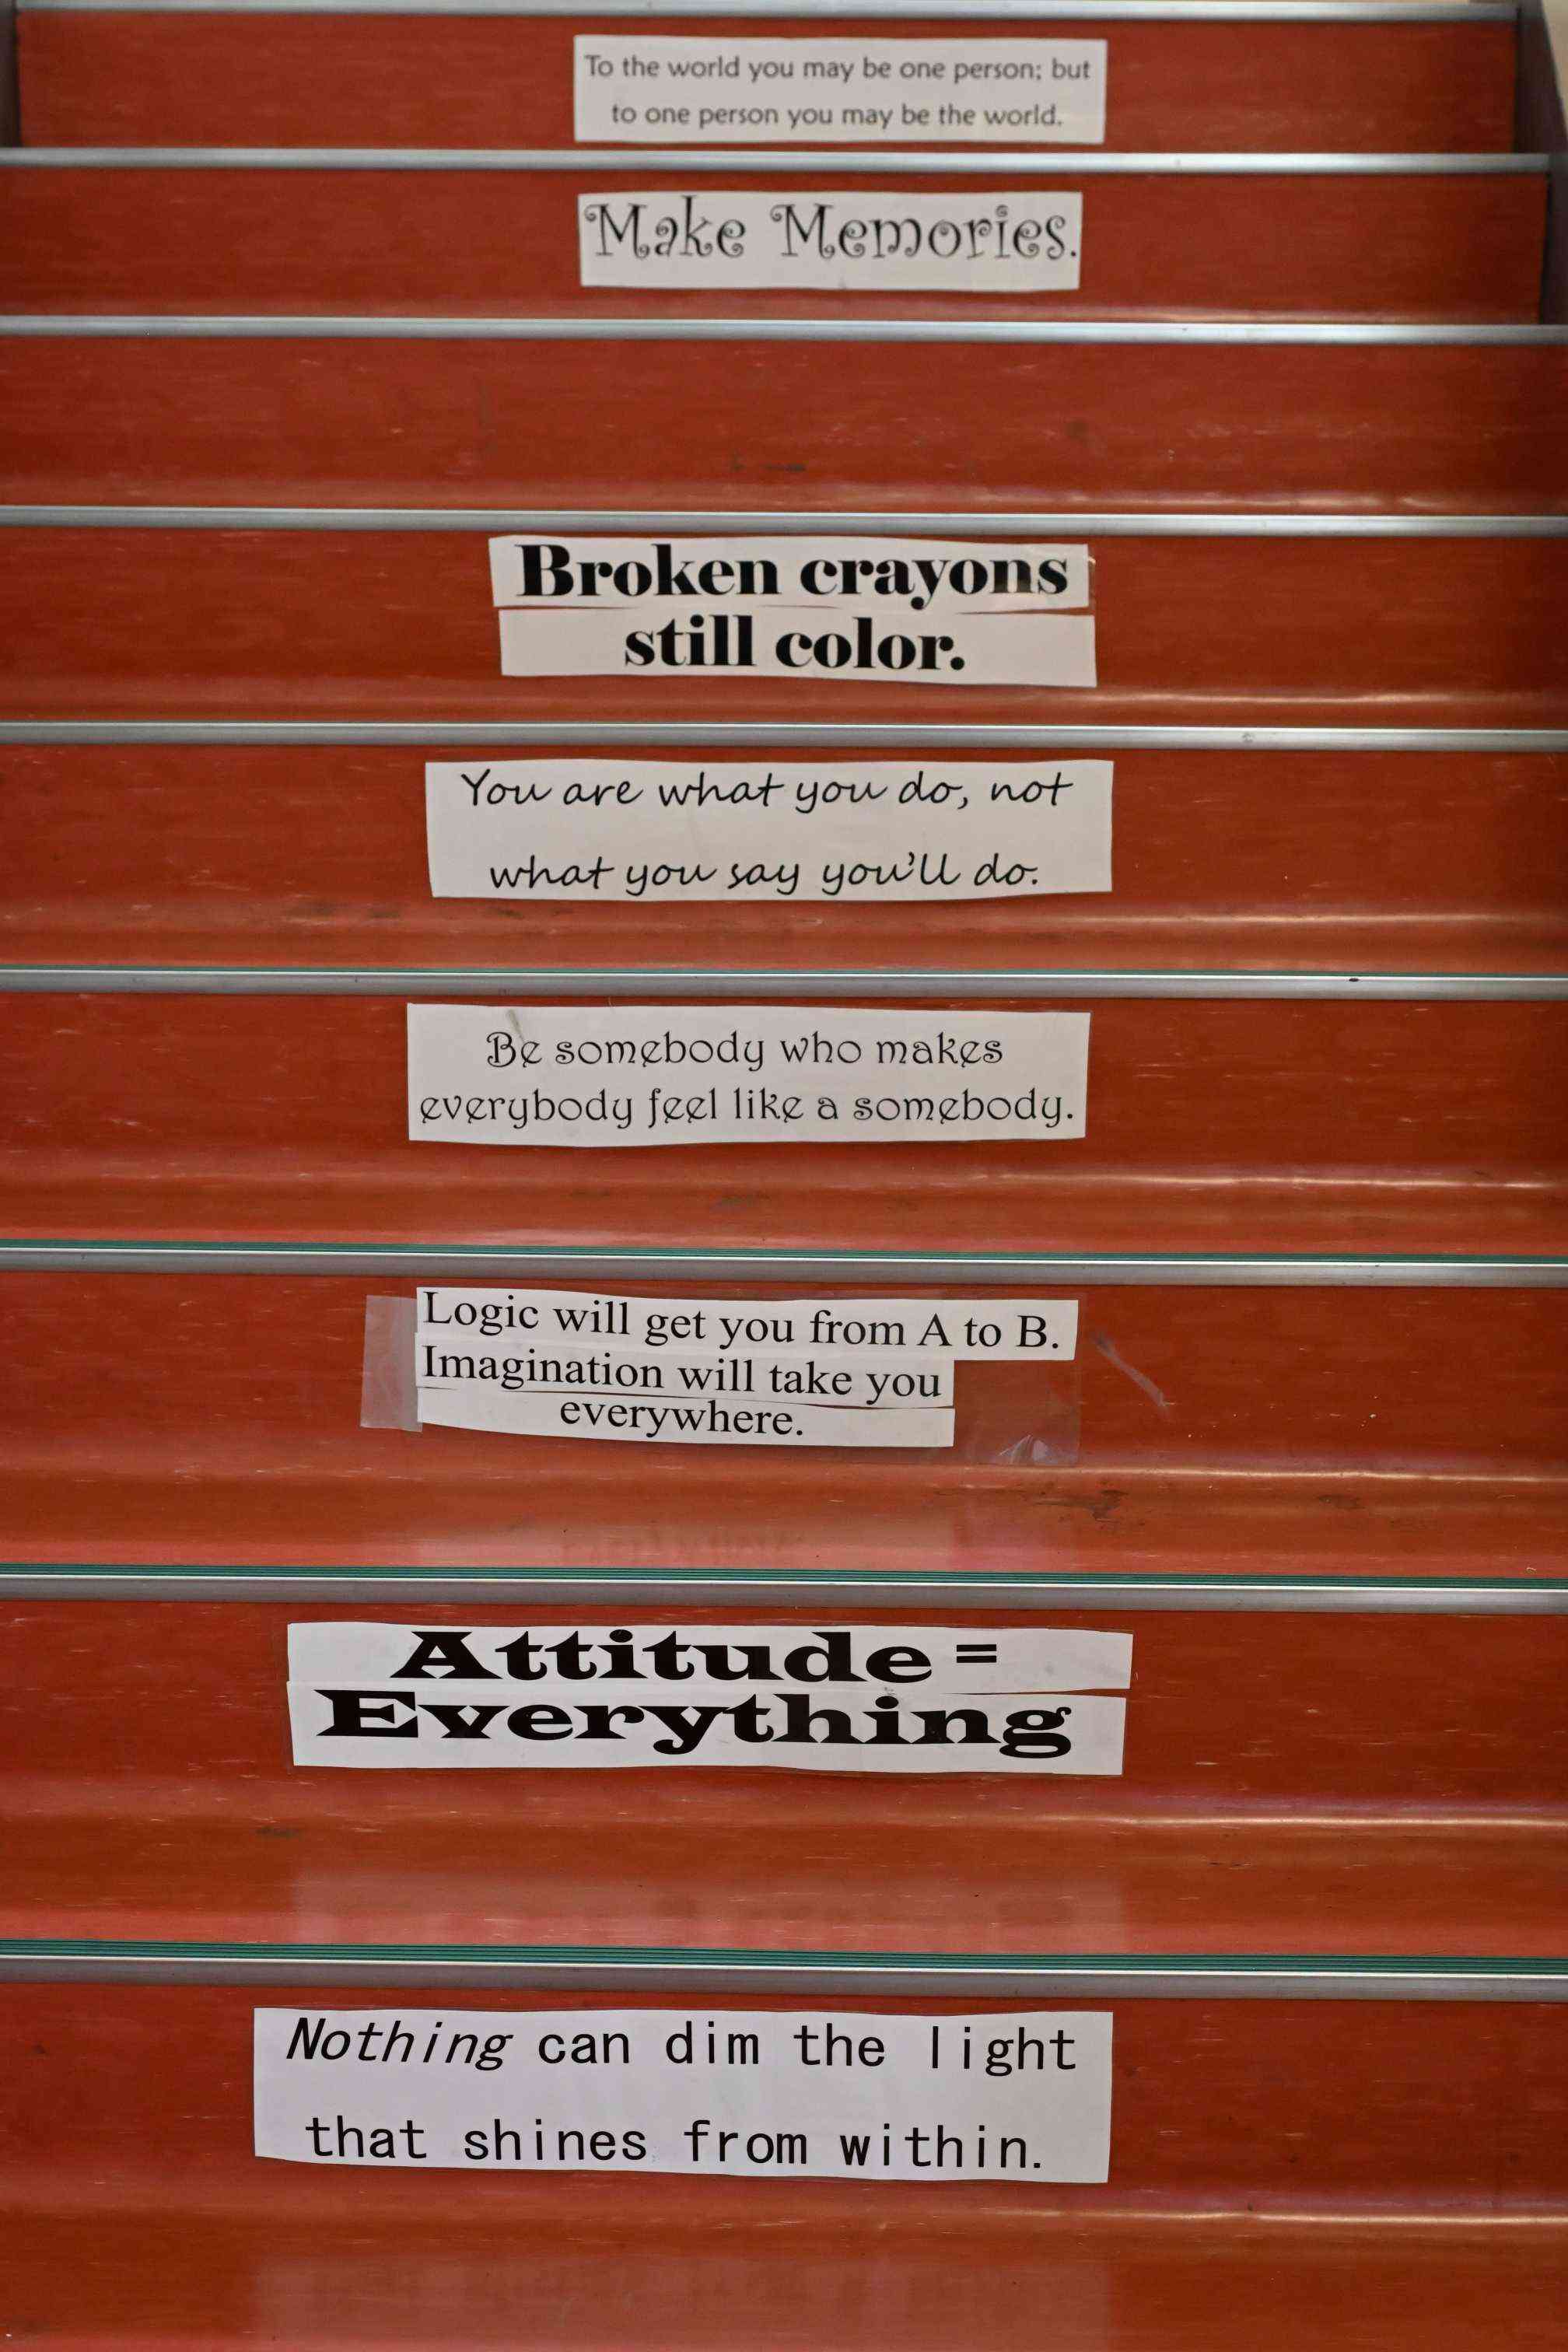 To the world you may be one person; but
to one person you may be the world.
Make Memories.
Broken crayons
still color.
You are what you do, not
what you say you'll do.
Be somebody who makes
everybody feel like a somebody.
Logic will get you from A to B.
Imagination will take you
everywhere.
Attitude =
Everything
Nothing can dim the light
that shines from within.